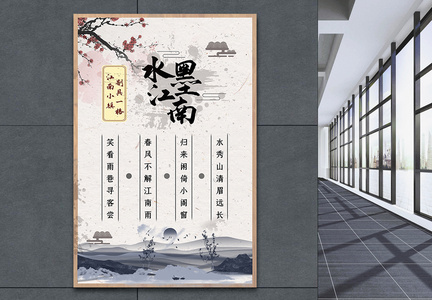 水墨
江南
别具一格
江南小镇
水秀山清眉远长
归来闲倚小阁窗
春风不解江南雨
笑看雨巷寻客尝